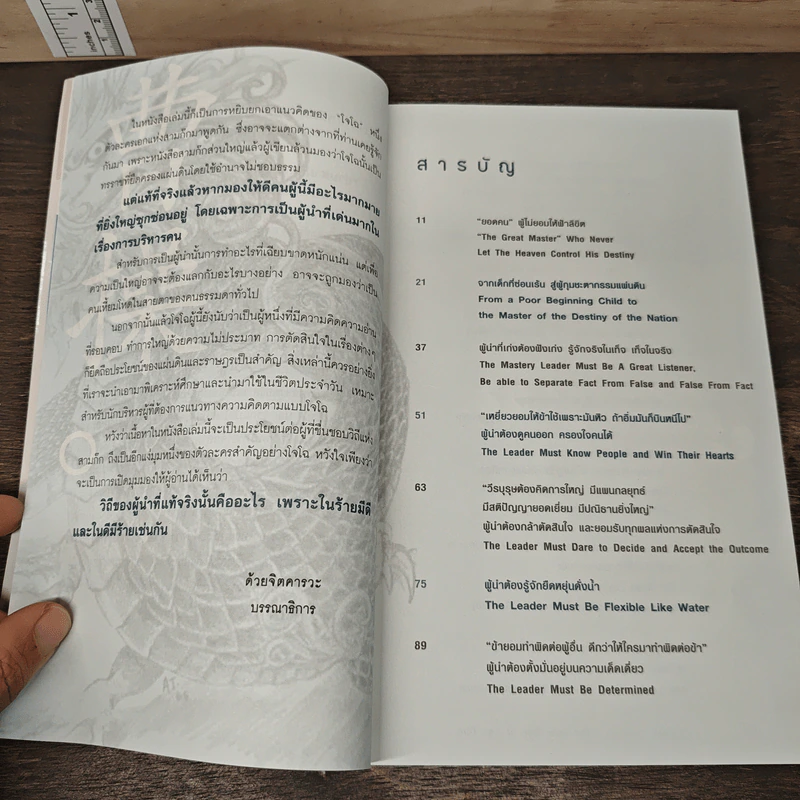 ในหนังสือเล่มนี้ก็เป็นการหยิบยกเอาแนวคิดของ "โจโฉ" หนึ่ง
ตัวละครเอกแห่งสามก๊กมาพูดกัน ซึ่งอาจจะแตกต่างจากที่ท่านเคยรู้จัก
กันมา เพราะหนังสือสามก๊กส่วนใหญ่แล้วผู้เขียนล้วนมองว่าโจโฉนั้นเป็น
ทรราชที่ยึดครองแผ่นดินโดยใช้อำนาจไม่ชอบธรรม
แต่แท้ที่จริงแล้วหากมองให้ดีคนผู้นี้มีอะไรมากมาย
ที่ยิ่งใหญ่ซุกซ่อนอยู่ โดยเฉพาะการเป็นผู้นำที่เด่นมากใน
เรื่องการบริหารคน
สำหรับการเป็นผู้นำนั้นการทำอะไรที่เฉียบขาดหนักแน่น แต่เพื่อ
ความเป็นใหญ่อาจจะต้องแลกกับอะไรบางอย่าง อาจจะถูกมองว่าเป็น
คนเหี้ยมโหดในสายตาของคนธรรมดาทั่วไป
นอกจากนั้นแล้วโจโฉผู้นี้ยังนับว่าเป็นผู้หนึ่งที่มีความคิดความอ่าน
ที่รอบคอบ ทำการใหญ่ด้วยความไม่ประมาท การตัดสินใจในเรื่องต่างๆ
ก็ยึดถือประโยชน์ของแผ่นดินและราษฎรเป็นสำคัญ สิ่งเหล่านี้ควรอย่างยิ่ง
ที่เราจะนำเอามาพิเคราะห์ศึกษาและนำมาใช้ในชีวิตประจำวัน เหมาะ
สำหรับนักบริหารผู้ที่ต้องการแนวทางความคิดตามแบบโจโฉ
หวังว่าเนื้อหาในหนังสือเล่มนี้จะเป็นประโยชน์ต่อผู้ที่ชื่นชอบวิถีแห่ง
สามก๊ก ถึงเป็นอีกแง่มุมหนึ่งของตัวละครสำคัญอย่างโจโฉ หวังใจเพียงว่า
จะเป็นการเปิดมุมมองให้ผู้อ่านได้เห็นว่า
วิถีของผู้นำที่แท้จริงนั้นคืออะไร เพราะในร้ายมีดี
และในดีมีร้ายเช่นกัน
ด้วยจิตคารวะ
บรรณาธิการ
สารบัญ
11 "ยอดคน" ผู้ไม่ยอมให้ฟ้าลิขิต
"The Great Master" Who Never
Let The Heaven Control His Destiny
21 จากเด็กที่ซ่อนเร้น สู่ผู้กุมชะตากรรมแผ่นดิน
From a Poor Beginning Child to
the Master of the Destiny of the Nation
37 ผู้นำที่เก่งต้องฟังเก่ง รู้จักจริงในเท็จ เท็จในจริง
The Mastery Leader Must Be A Great Listener,
Be able to Separate Fact From False and False From Fact
51 "เหยี่ยวยอมให้ข้าใช้เพราะมันหิว ถ้าอิ่มมันก็บินหนีไป"
ผู้นำต้องดูคนออก ครองใจคนได้
The Leader Must Know People and Win Their Hearts
63 "วีรบุรุษต้องคิดการใหญ่ มีแผนกลยุทธ์
มีสติปัญญายอดเยี่ยม มีปณิธานยิ่งใหญ่"
ผู้นำต้องกล้าตัดสินใจ และยอมรับทุกผลแห่งการตัดสินใจ
The Leader Must Dare to Decide and Accept the Outcome
75 ผู้นำต้องรู้จักยืดหยุ่นดั่งน้ำ
The Leader Must Be Flexible Like Water
89 "ข้ายอมทำผิดต่อผู้อื่น ดีกว่าให้ใครมาทำผิดต่อข้า"
ผู้นำต้องตั้งมั่นอยู่บนความเด็ดเดี่ยว
The Leader Must Be Determined